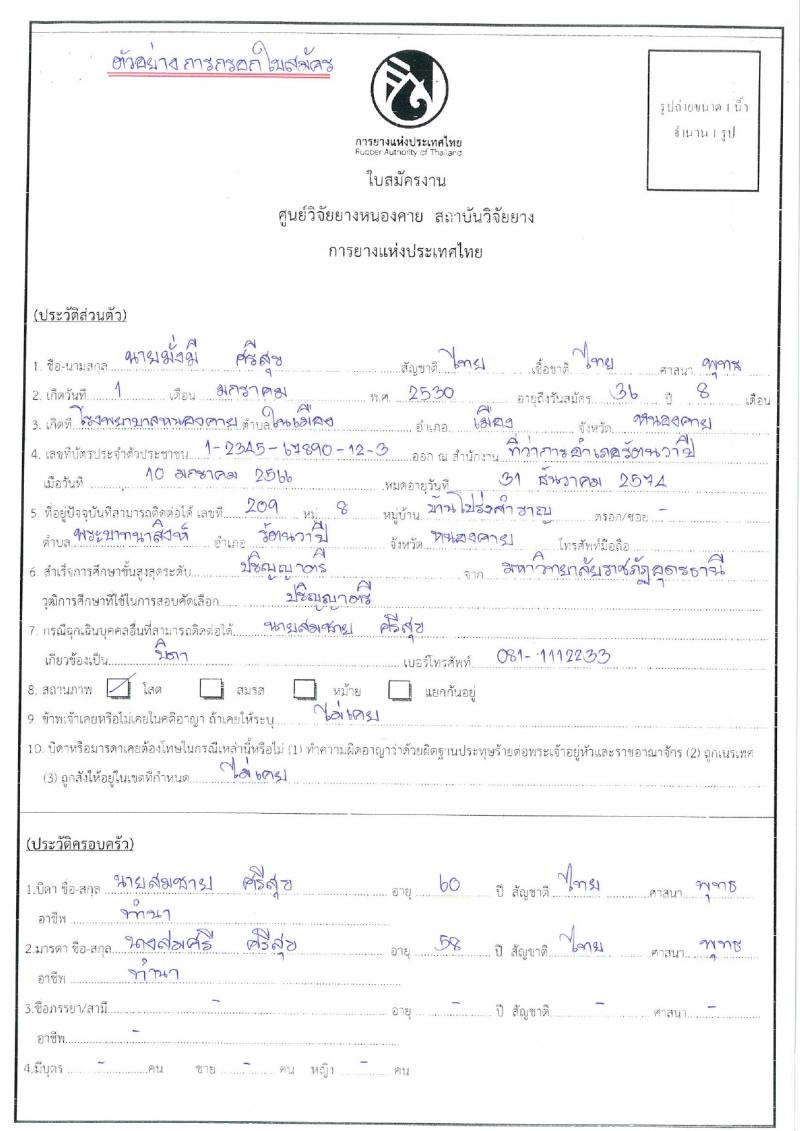 ตัวอย่าง การกรอกใบสมัคร
รูปถ่ายขนาด 1 นิ้ว
จำนวน 1 รูป
การยางแห่งประเทศไทย
Rubber Authority of Thailand
ใบสมัครงาน
ศูนย์วิจัยยางหนองคาย สถาบันวิจัยยาง
การยางแห่งประเทศไทย
(ประวัติส่วนตัว)
1. ชื่อ-นามสกุล นายมั่งมี ศรีสุข สัญชาติ ไทย เชื้อชาติ ไทย ศาสนา พุทธ
2. เกิดวันที่ 1 เดือน มกราคม พ.ศ. 2530 อายุถึงวันสมัคร 36 ปี 8 เดือน
3. เกิดที่ โรงพยาบาลหนองคาย ตำบล ในเมือง อำเภอ เมือง จังหวัด หนองคาย
4. เลขที่บัตรประจำตัวประชาชน 1-2345-67890-12-3 ออก ณ สำนักงาน ที่ว่าการอำเภอรัตนวาปี
เมื่อวันที่ 10 มกราคม 2566 หมดอายุวันที่ 31 ธันวาคม 2574
5. ที่อยู่ปัจจุบันที่สามารถติดต่อได้ เลขที่ 209 หมู่ 8 หมู่บ้าน บ้านโปร่งสำราญ ตรอก/ซอย -
ตำบล พระบาทนาสิงห์ อำเภอ รัตนวาปี จังหวัด หนองคาย โทรศัพท์มือถือ
6. สำเร็จการศึกษาขั้นสูงสุดระดับ ปริญญาตรี จาก มหาวิทยาลัยราชภัฏอุดรธานี
วุฒิการศึกษาที่ใช้ในการสอบคัดเลือก ปริญญาตรี
7. กรณีฉุกเฉินบุคคลอื่นที่สามารถติดต่อได้ นายสมชาย ศรีสุข
เกี่ยวข้องเป็น บิดา เบอร์โทรศัพท์ 081-1112233
8. สถานภาพ โสด สมรส หม้าย แยกกันอยู่
9 ข้าพเจ้าเคยหรือไม่เคยในคดีอาญา ถ้าเคยให้ระบุ ไม่เคย
10. บิดาหรือมารดาเคยต้องโทษในกรณีเหล่านี้หรือไม่ (1) ทำความผิดอาญาว่าด้วยผิดฐานประทุษร้ายต่อพระเจ้าอยู่หัวและราชอาณาจักร (2) ถูกเนรเทศ
(3) ถูกสั่งให้อยู่ในเขตที่กำหนด ไม่เคย
(ประวัติครอบครัว)
1.บิดา ชื่อ-สกุล นายสมชาย ศรีสุข อายุ 60 ปี สัญชาติ ไทย ศาสนา พุทธ
อาชีพ ทำนา
2.มารดา ชื่อ-สกุล นางสมศรี ศรีสุข อายุ 58 ปี สัญชาติ ไทย ศาสนา พุทธ
อาชีพ ทำนา
3.ชื่อภรรยา/สามี - อายุ - ปี สัญชาติ - ศาสนา -
อาชีพ -
4.มีบุตร - คน ชาย - คน หญิง - คน